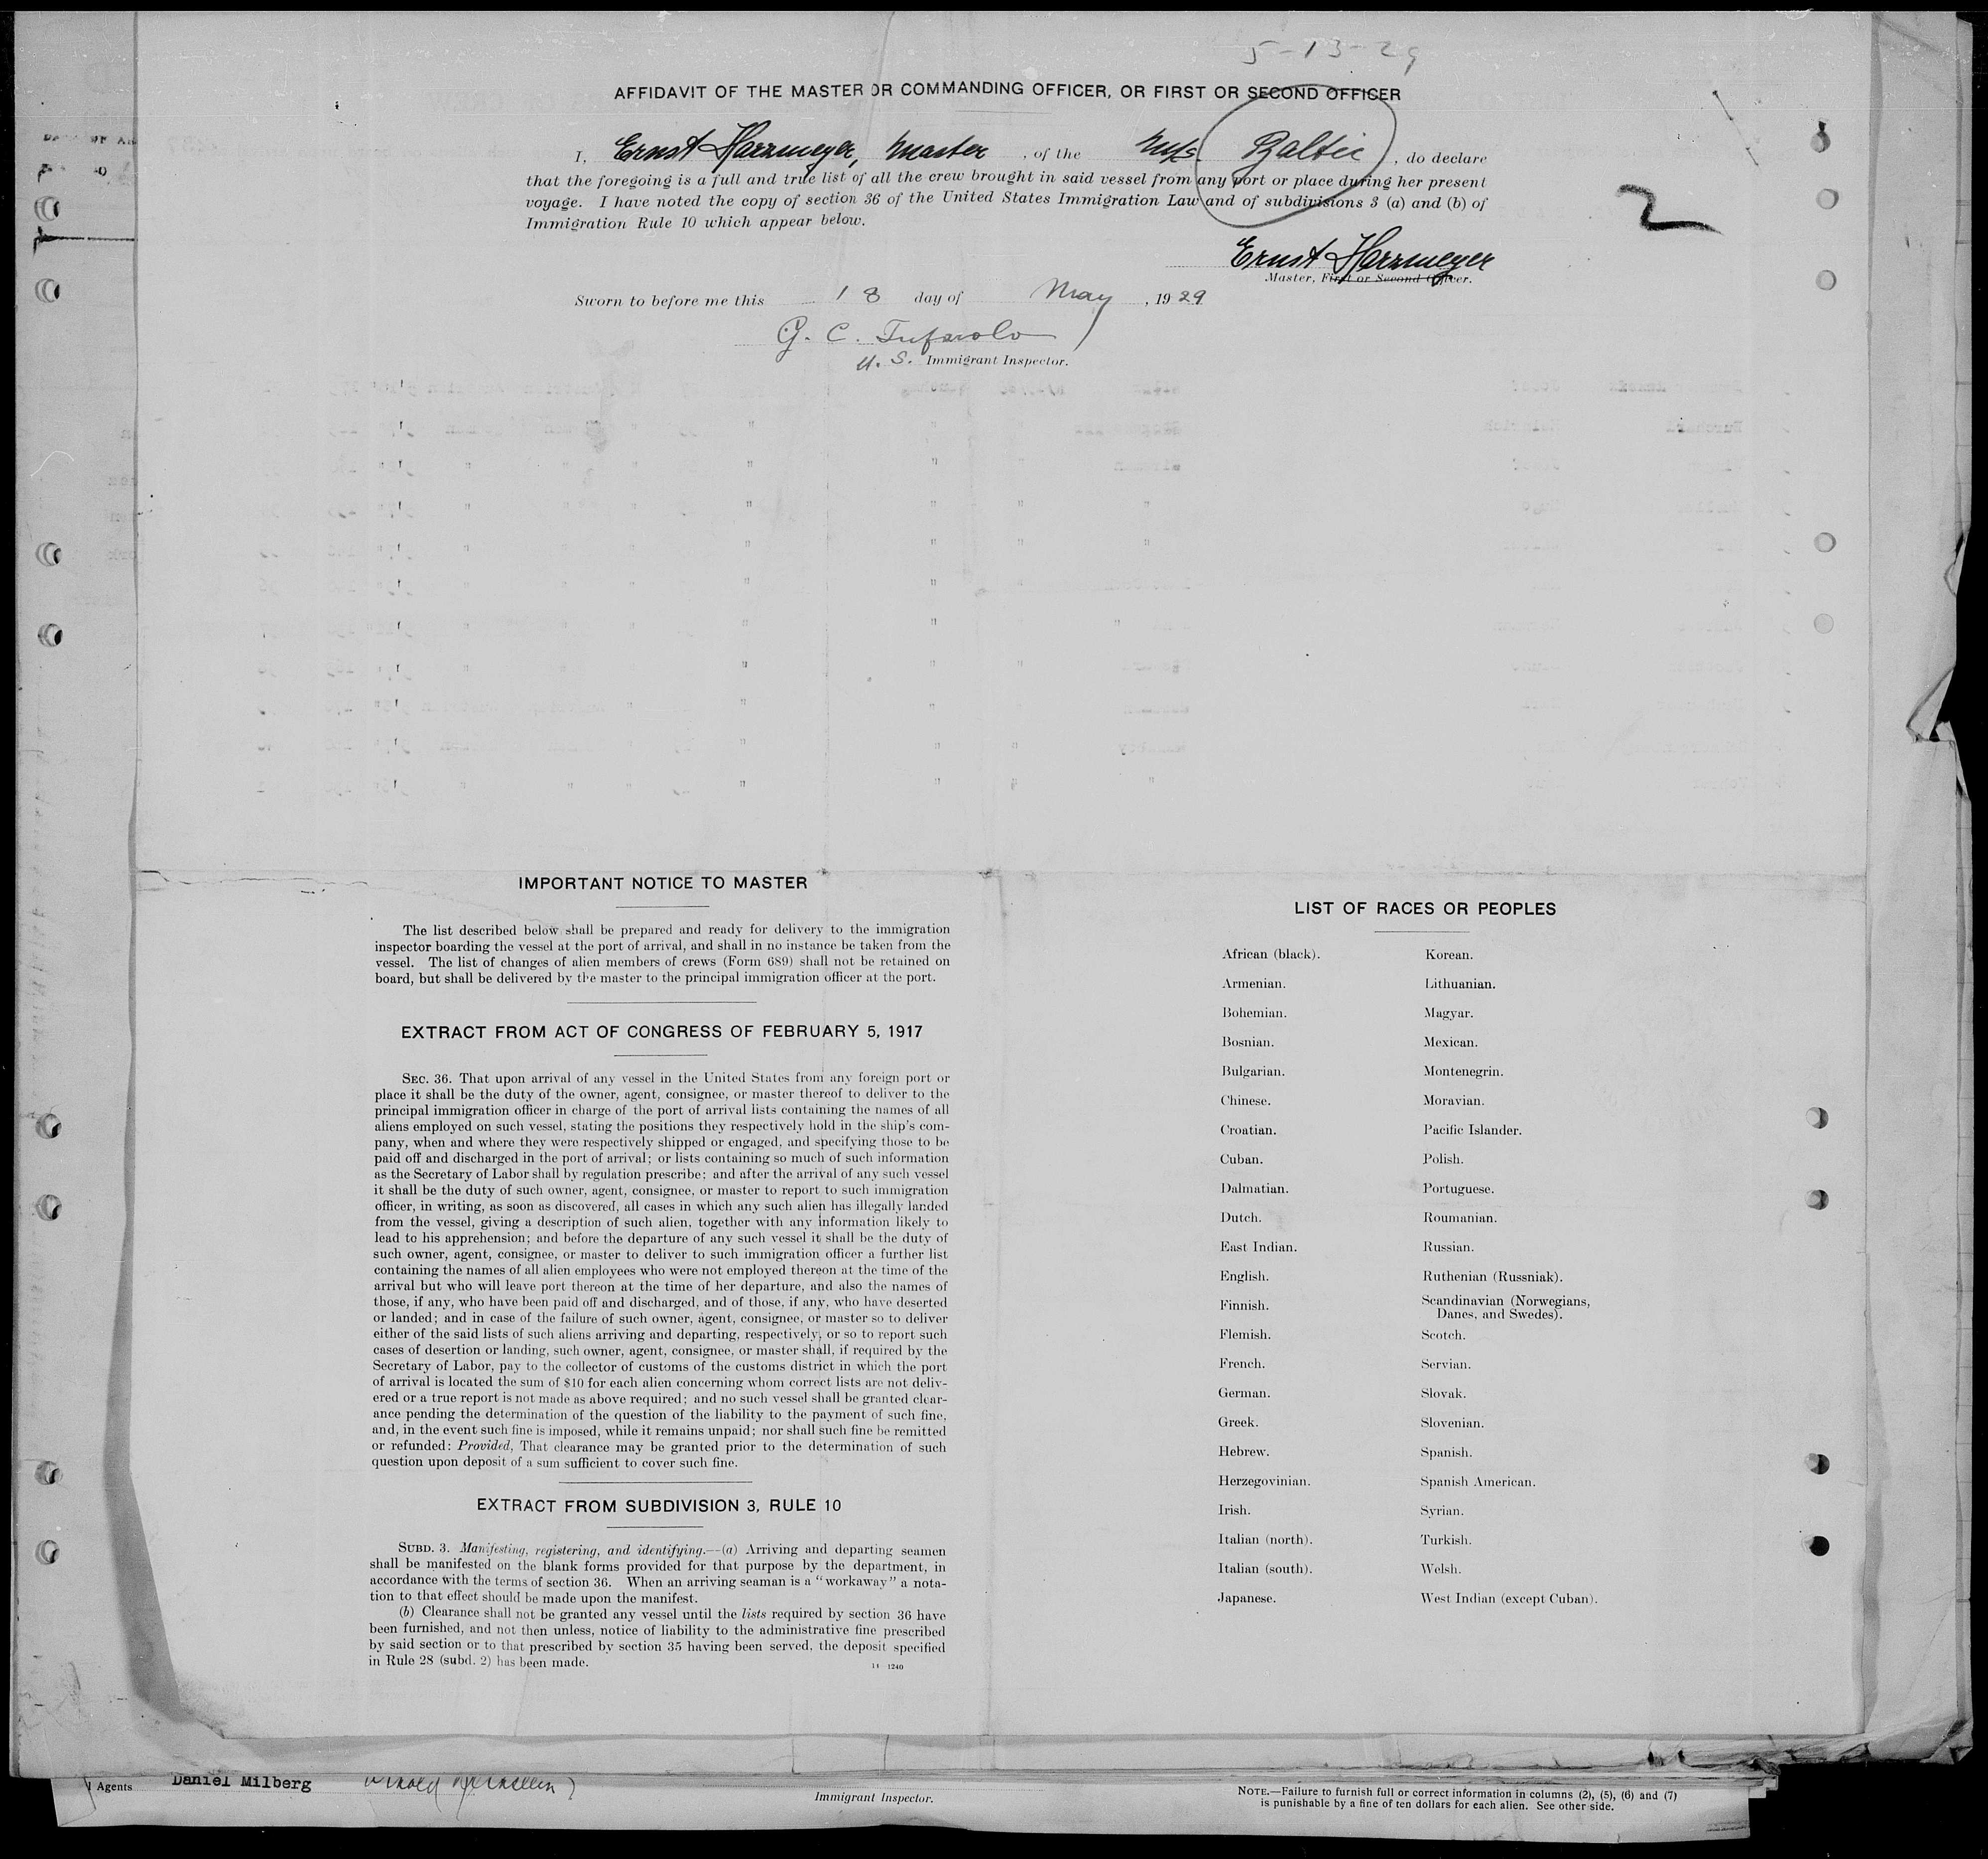 5-13-29
AFFIDAVIT OF THE MASTER OR COMMANDING OFFICER, OR FIRST OR SECOND OFFICER
I, Ernst Harzmeyer, Master, of the M/s. Baltic, do declare
that the foregoing is a full and true list of all the crew brought in said vessel from any port or place during her present
voyage. I have noted the copy of section 36 of the United States Immigration Law and of subdivisions 3 (a) and (b) of
Immigration Rule 10 which appear below.
2
Ernst Harzmeyer
Master, First or Second Officer.
Sworn to before me this 13 day of May, 1929
G. C. Tufarolo
U. S. Immigrant Inspector.
IMPORTANT NOTICE TO MASTER
The list described below shall be prepared and ready for delivery to the immigration
inspector boarding the vessel at the port of arrival, and shall in no instance be taken from the
vessel. The list of changes of alien members of crews (Form 689) shall not be retained on
board, but shall be delivered by the master to the principal immigration officer at the port.
EXTRACT FROM ACT OF CONGRESS OF FEBRUARY 5, 1917
SEC. 36. That upon arrival of any vessel in the United States from any foreign port or
place it shall be the duty of the owner, agent, consignee, or master thereof to deliver to the
principal immigration officer in charge of the port of arrival lists containing the names of all
aliens employed on such vessel, stating the positions they respectively hold in the ship's com-
pany, when and where they were respectively shipped or engaged, and specifying those to be
paid off and discharged in the port of arrival; or lists containing so much of such information
as the Secretary of Labor shall by regulation prescribe; and after the arrival of any such vessel
it shall be the duty of such owner, agent, consignee, or master to report to such immigration
officer, in writing, as soon as discovered, all cases in which any such alien has illegally landed
from the vessel, giving a description of such alien, together with any information likely to
lead to his apprehension; and before the departure of any such vessel it shall be the duty of
such owner, agent, consignee, or master to deliver to such immigration officer a further list
containing the names of all alien employees who were not employed thereon at the time of the
arrival but who will leave port thereon at the time of her departure, and also the names of
those, if any, who have been paid off and discharged, and of those, if any, who have deserted
or landed; and in case of the failure of such owner, agent, consignee, or master so to deliver
either of the said lists of such aliens arriving and departing, respectively, or so to report such
cases of desertion or landing, such owner, agent, consignee, or master shall, if required by the
Secretary of Labor, pay to the collector of customs of the customs district in which the port
of arrival is located the sum of $10 for each alien concerning whom correct lists are not deliv-
ered or a true report is not made as above required; and no such vessel shall be granted clear-
ance pending the determination of the question of the liability to the payment of such fine,
and, in the event such fine is imposed, while it remains unpaid; nor shall such fine be remitted
or refunded: Provided, That clearance may be granted prior to the determination of such
question upon deposit of a sum sufficient to cover such fine.
EXTRACT FROM SUBDIVISION 3, RULE 10
SUBD. 3. Manifesting, registering, and identifying.—(a) Arriving and departing seamen
shall be manifested on the blank forms provided for that purpose by the department, in
accordance with the terms of section 36. When an arriving seaman is a "workaway" a nota-
tion to that effect should be made upon the manifest.
(b) Clearance shall not be granted any vessel until the lists required by section 36 have
been furnished, and not then unless, notice of liability to the administrative fine prescribed
by said section or to that prescribed by section 35 having been served, the deposit specified
in Rule 28 (subd. 2) has been made.
14 1240
LIST OF RACES OR PEOPLES
African (black). Korean.
Armenian. Lithuanian.
Bohemian. Magyar.
Bosnian. Mexican.
Bulgarian. Montenegrin.
Chinese. Moravian.
Croatian. Pacific Islander.
Cuban. Polish.
Dalmatian. Portuguese.
Dutch. Roumanian.
East Indian. Russian.
English. Ruthenian (Russniak).
Finnish. Scandinavian (Norwegians,
Danes, and Swedes).
Flemish. Scotch.
French. Servian.
German. Slovak.
Greek. Slovenian.
Hebrew. Spanish.
Herzegovinian. Spanish American.
Irish. Syrian.
Italian (north). Turkish.
Italian (south). Welsh.
Japanese. West Indian (except Cuban).
Agents Daniel Milberg
Immigrant Inspector.
NOTE.—Failure to furnish full or correct information in columns (2), (5), (6) and (7)
is punishable by a fine of ten dollars for each alien. See other side.